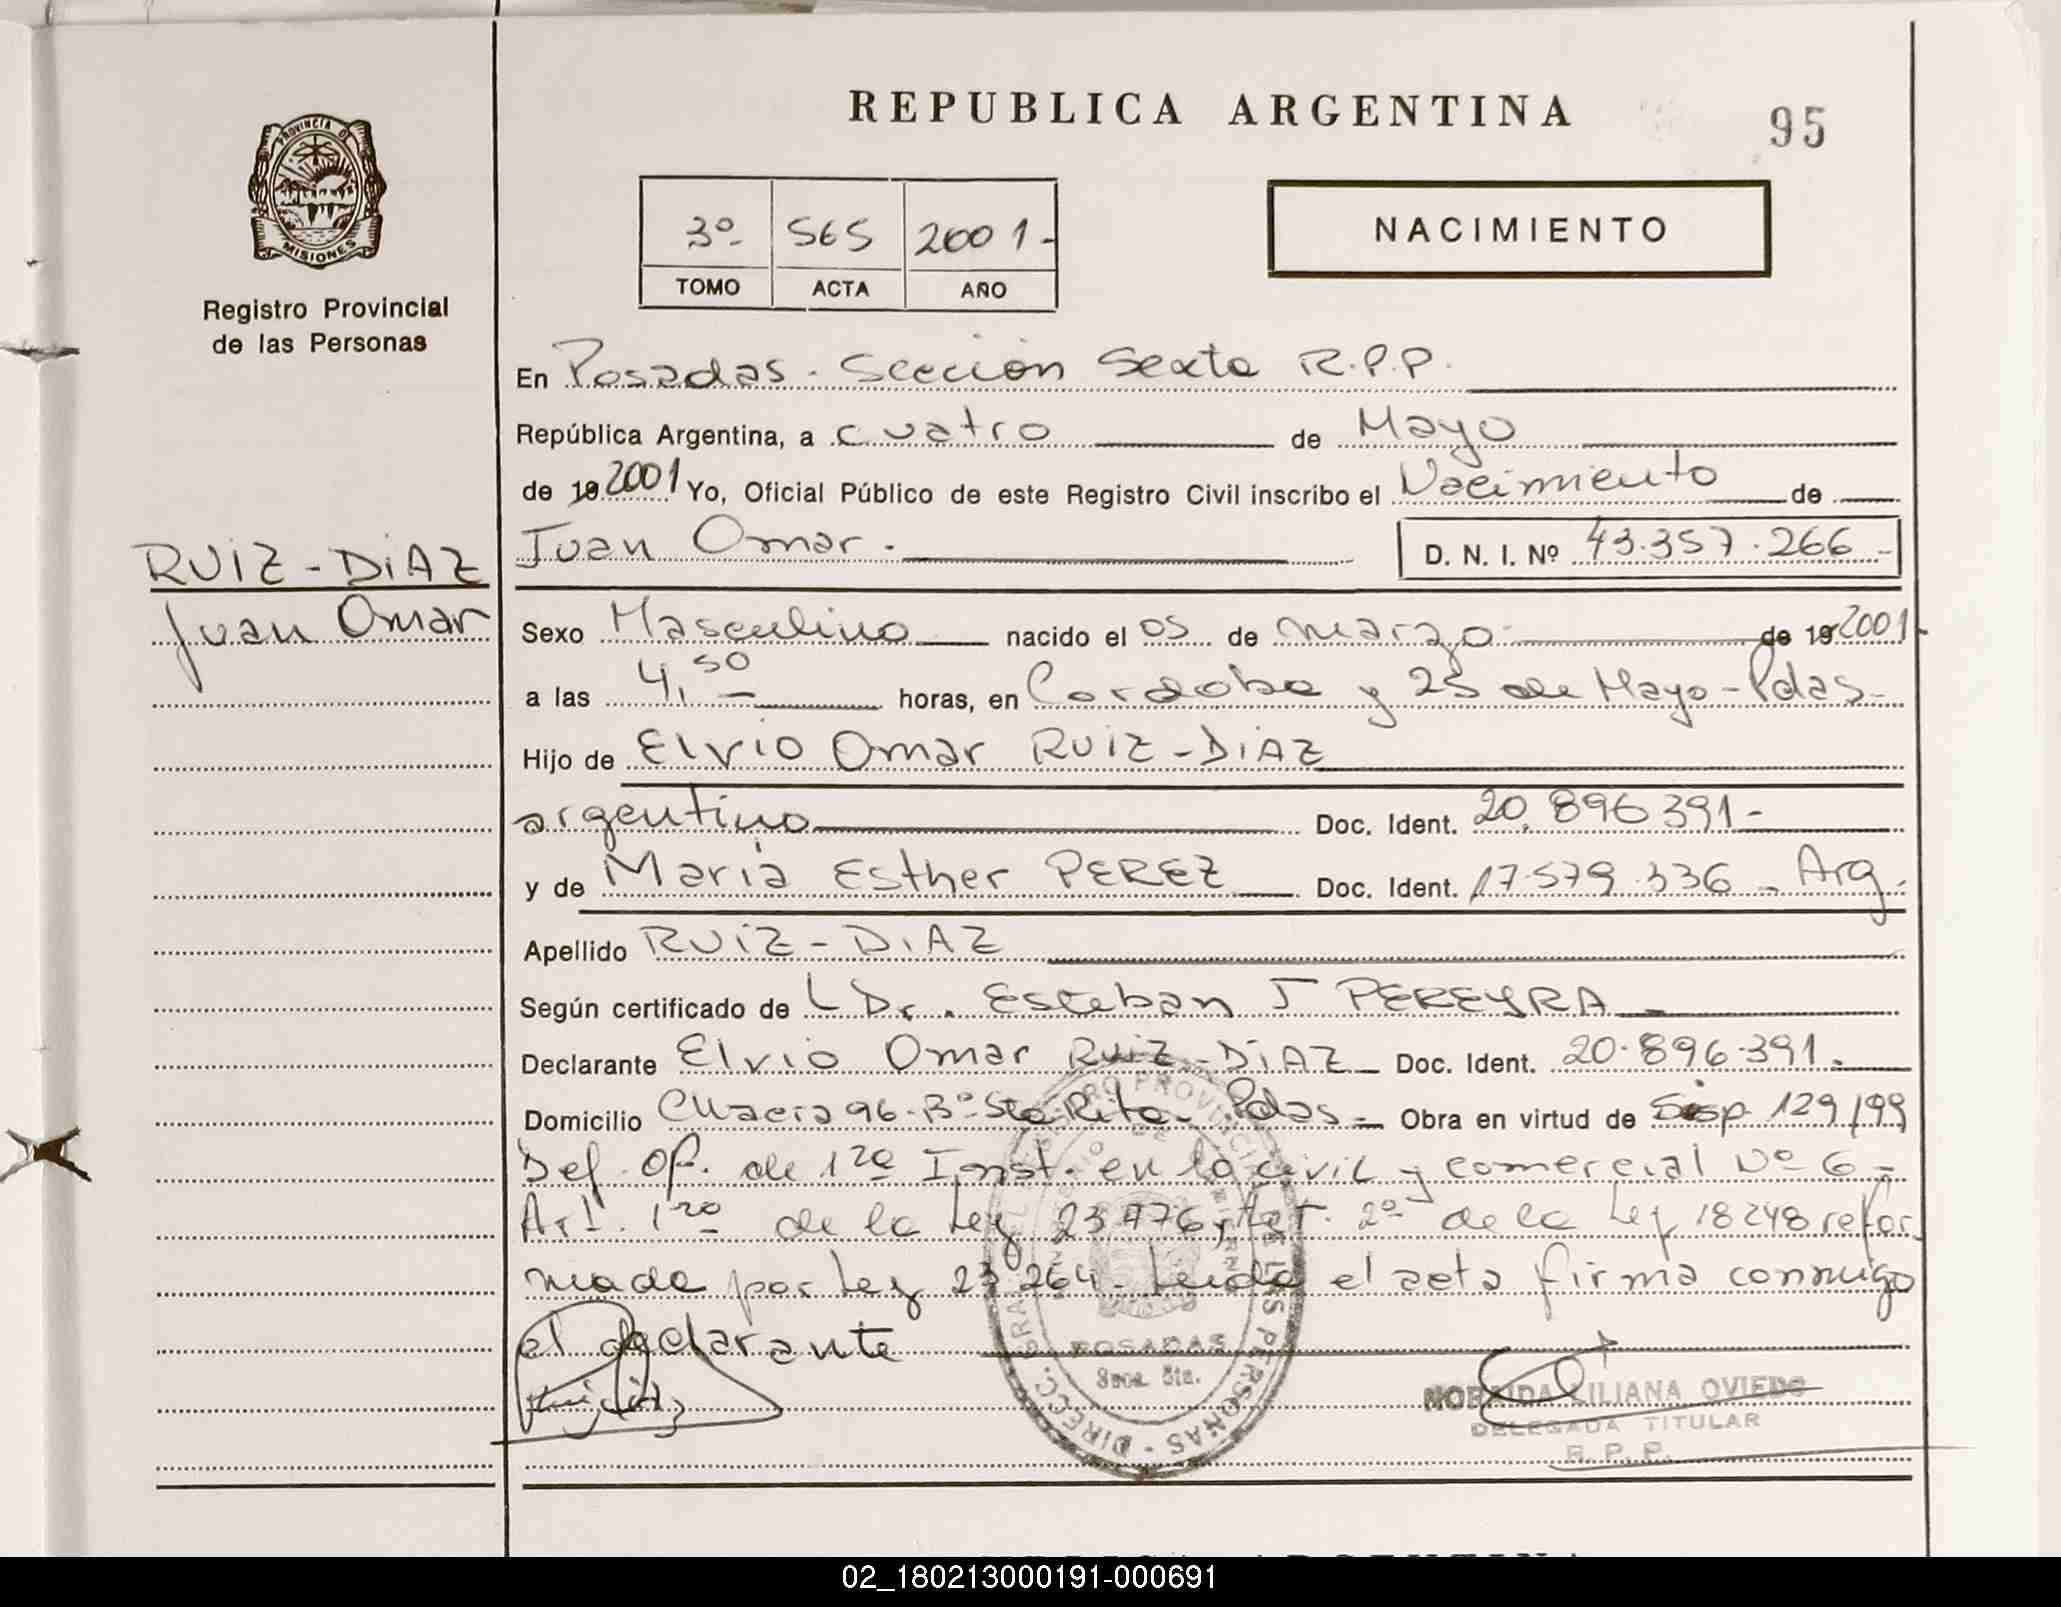 REPUBLICA ARGENTINA
95
PROVINCIA DE
MISIONES
Registro Provincial
de las Personas
3º 565 2001-
TOMO ACTA AÑO
NACIMIENTO
En Posadas. Sección Sexta R.P.P.
República Argentina, a cuatro de Mayo
de 19 2001 Yo, Oficial Público de este Registro Civil inscribo el Nacimiento de
Juan Omar. D. N. I. Nº 43.357.266-
RUIZ-DiAZ
Juan Omar
Sexo Masculino nacido el 05 de marzo de 19 2001-
a las 4,50 horas, en Cordoba y 25 de Mayo-Pdas-
Hijo de Elvio Omar RUIZ-DiAZ
argentino Doc. Ident. 20.896.391-
y de Maria Esther PEREZ Doc. Ident. 17.579.336- Arg.
Apellido RUiZ-DiAZ
Según certificado de Dr. Esteban J PEREYRA
Declarante Elvio Omar RUIZ-DiAZ Doc. Ident. 20.896.391.
Domicilio Chacra 96-Bº Sta Rita- Pdas- Obra en virtud de 129/99
Def. Of. de 1ra Inst. en lo civil y comercial Nº 6-
Art. 1ro de la Ley Art. 2º de la Ley 18248 refor
mada por Ley 23264- Leida el acta firma conmigo
el declarante
POSADAS
Secc. 6ta.
LILIANA OVIEDO
DELEGADA TITULAR
R. P. P.
02_180213000191-000691